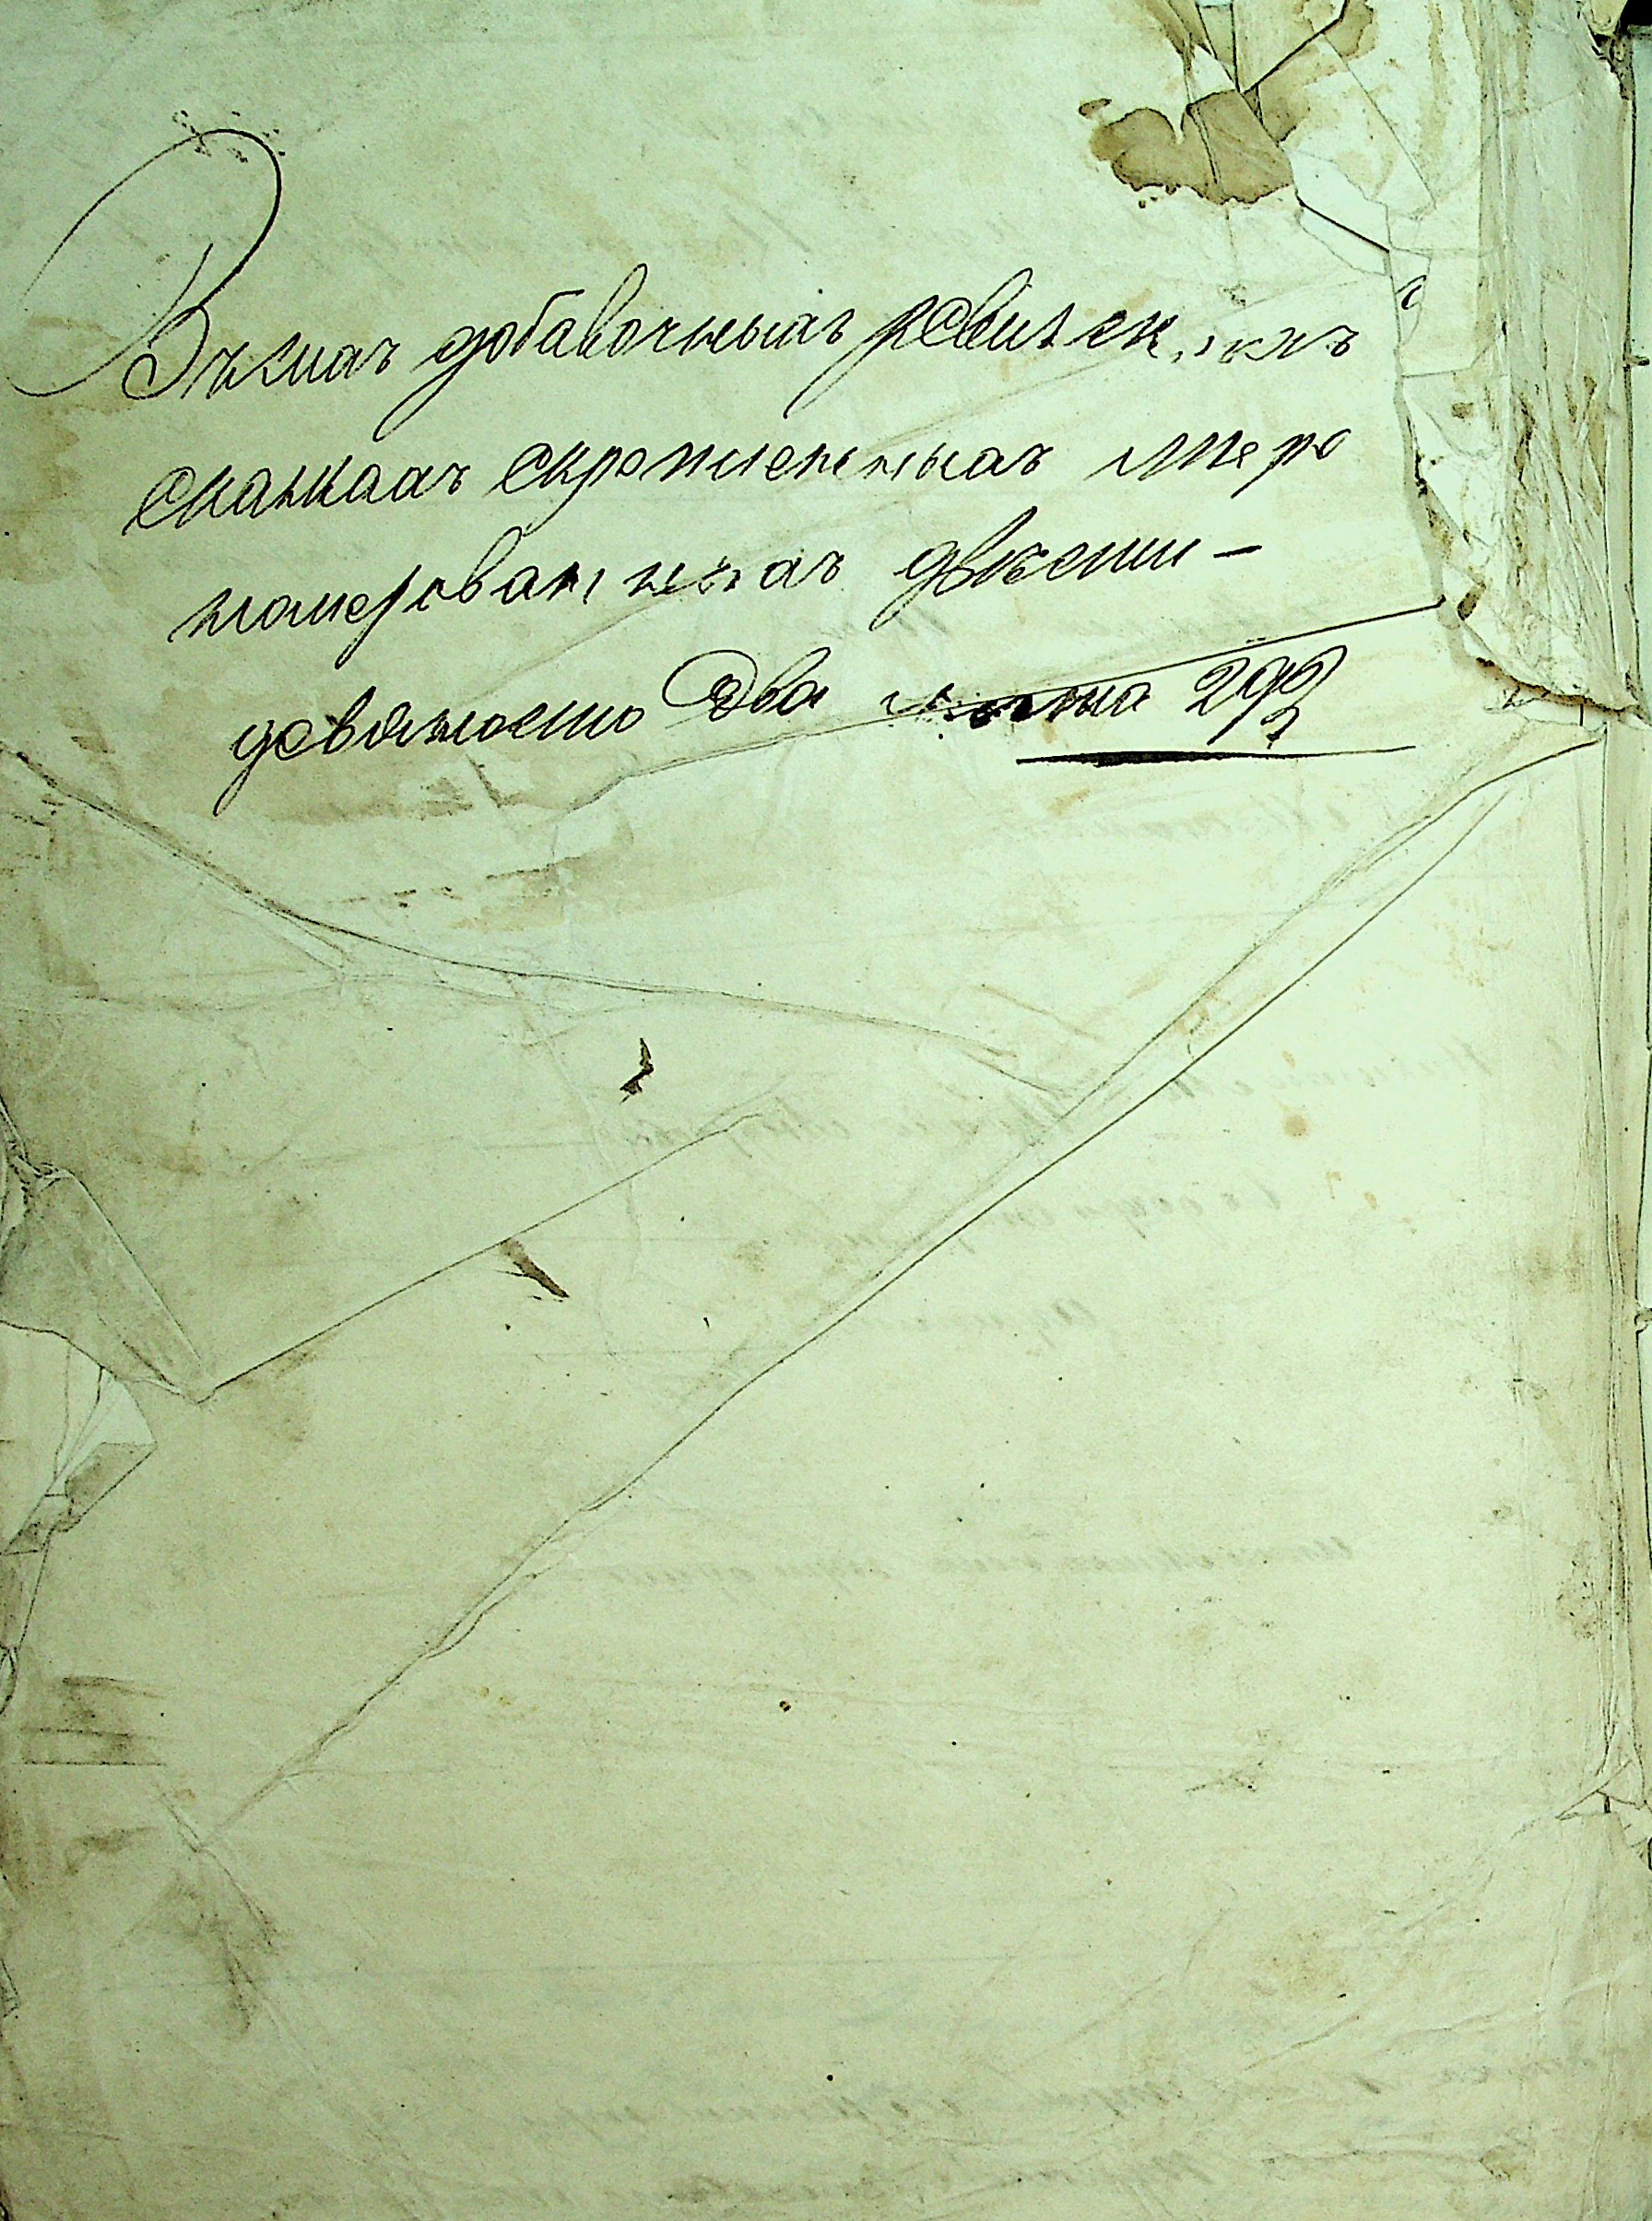 Въ сихъ добавочныхъ ревизскихъ
сказкахъ скрепленныхъ и пе ро
номерованныхъ двѣсти –
девяносто два листа 292